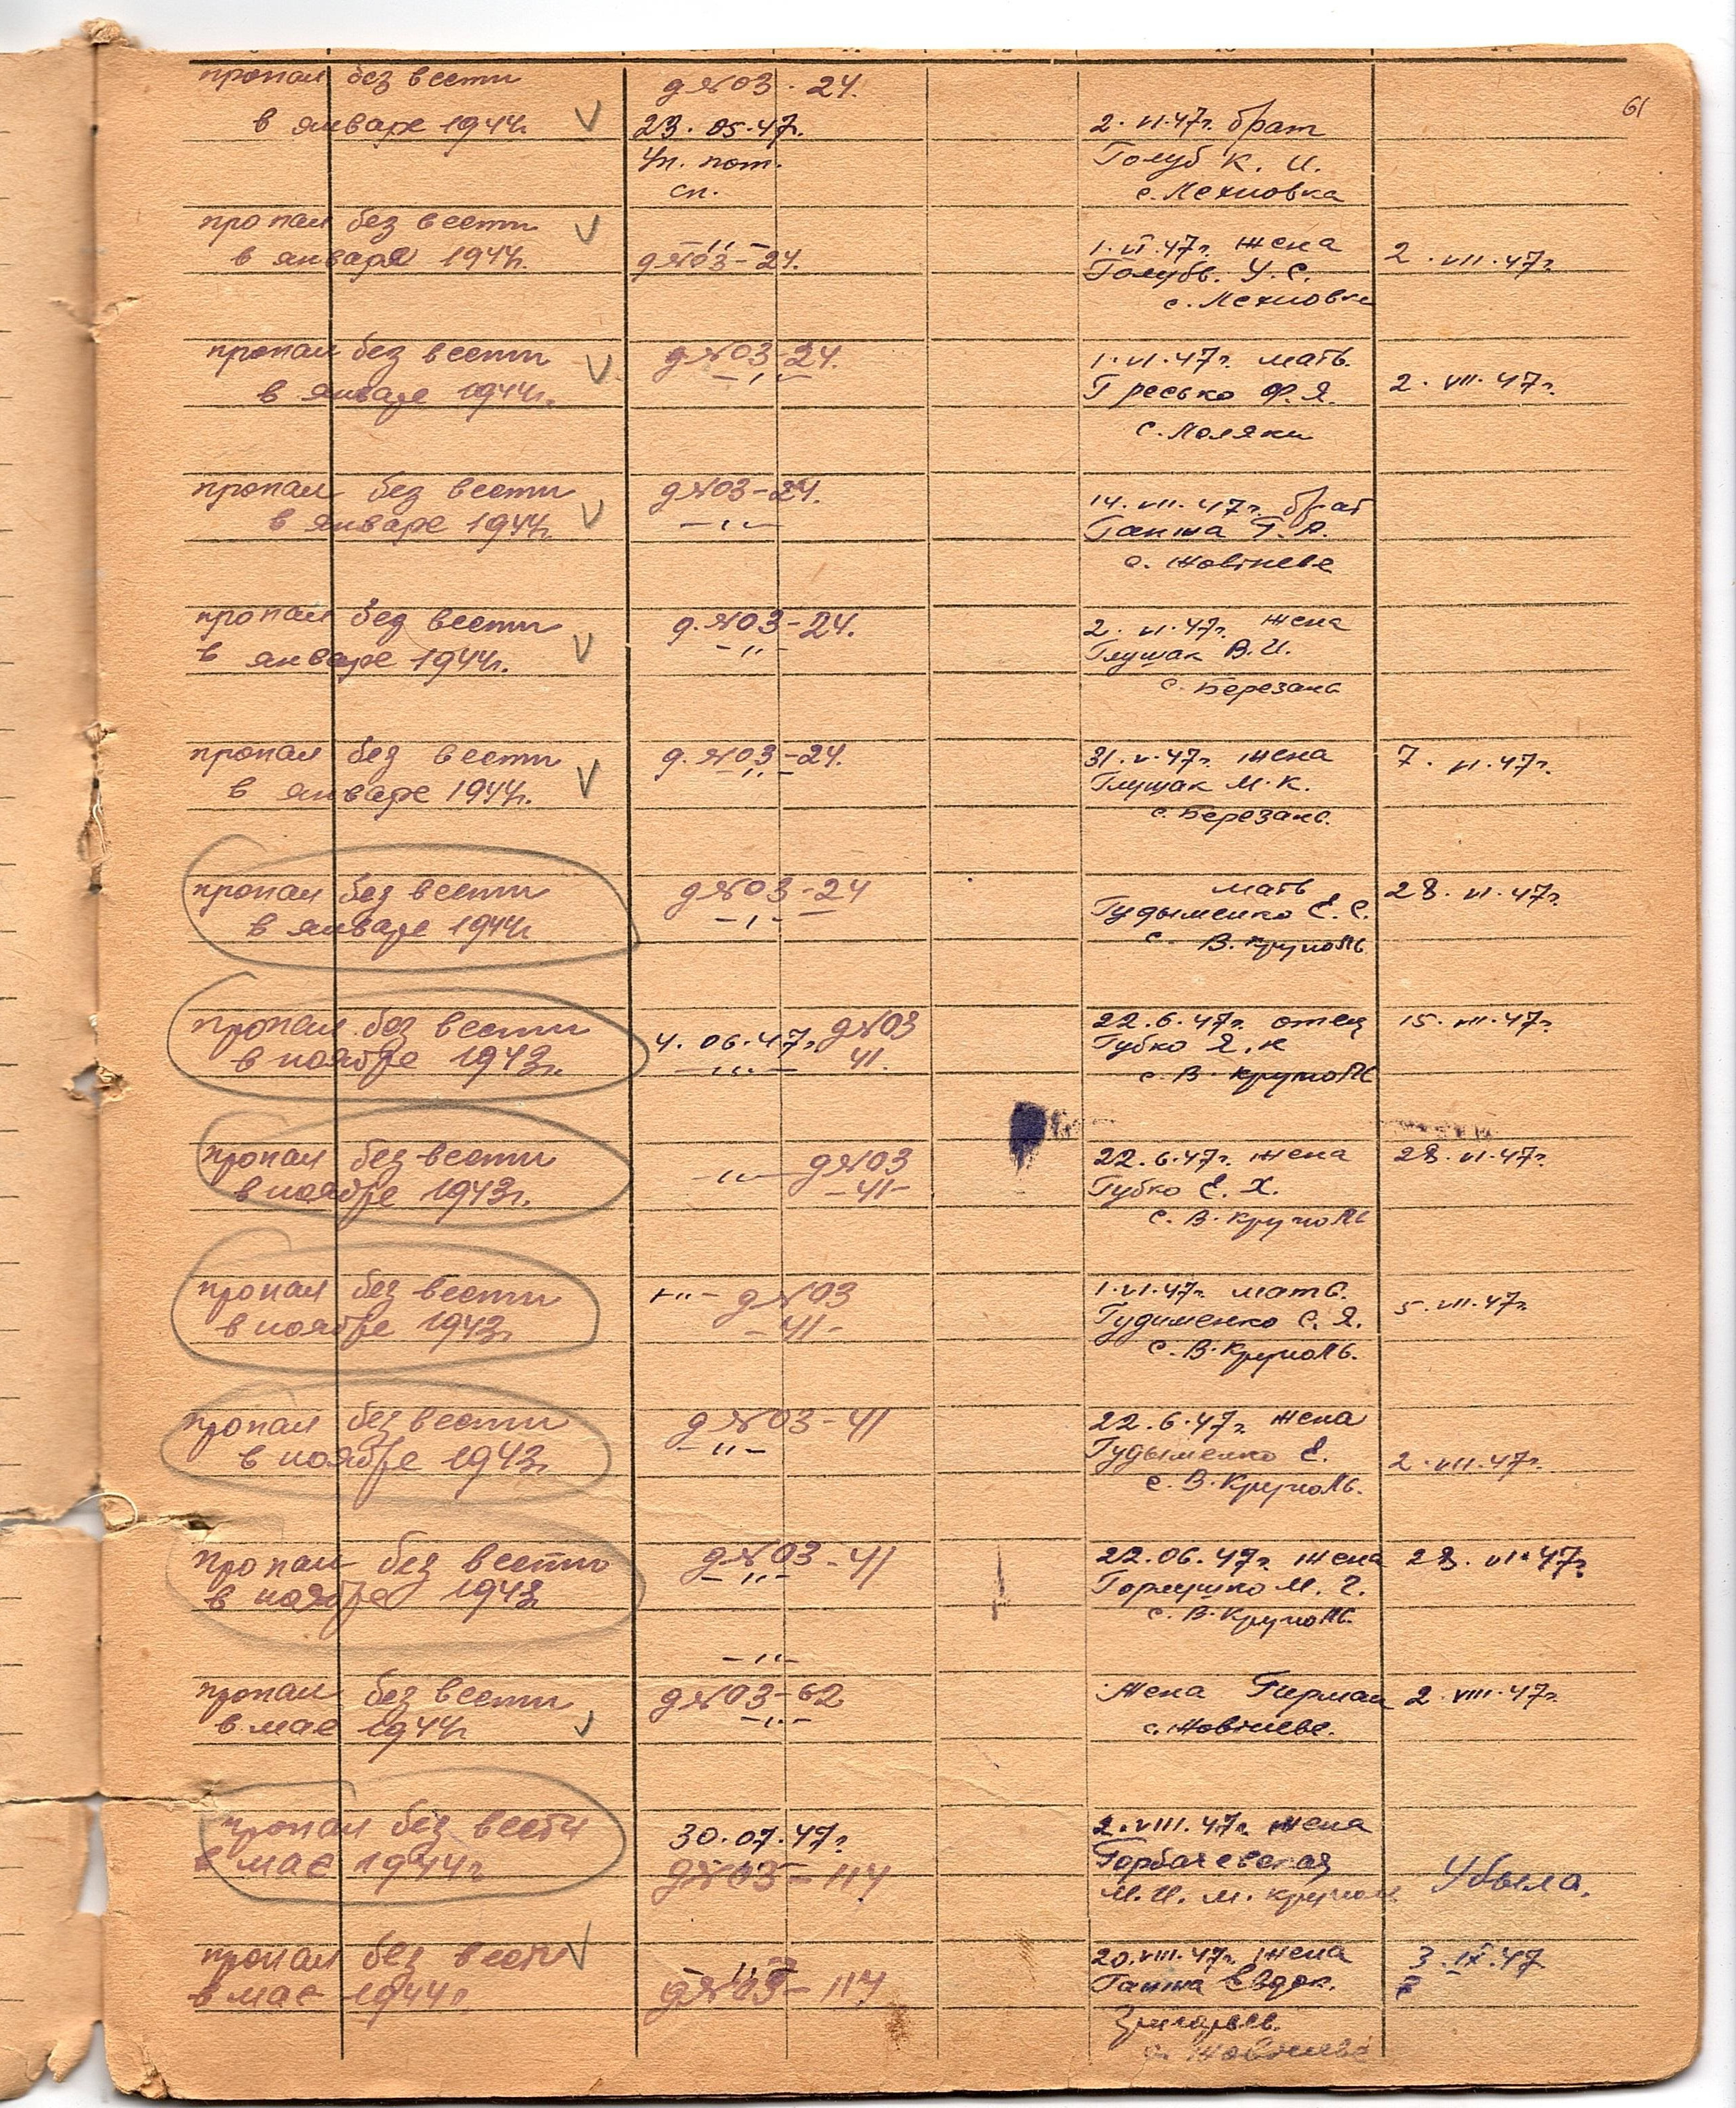 61
пропал без вести
в январе 1944г.
д №03 - 24.
23. 05. 47г.
Уп. пот.
сп.
2. VI. 47г. брат
Голуб К. И.
с. Лехновка
пропал без вести
в январе 1944г.
— " —
д №03 - 24.
1. VI. 47г. жена
Голубь. У. С.
с. Лехновка
2. VII. 47г.
пропал без вести
в январе 1944г.
д №03 - 24.
— " —
1. VI. 47г. мать.
Гресько Ф. Я.
с. Поляки
2. VII. 47г.
пропал без вести
в январе 1944г.
д №03 - 24.
— " —
14. VII. 47г. брат
Ганжа Г. А.
с. Жовтневе
пропал без вести
в январе 1944г.
д. №03 - 24.
— " —
2. VI. 47г. жена
Глущак В. И.
с. Березань
пропал без вести
в январе 1944г.
д. №03 - 24.
— " —
31. V. 47г. жена
Глущак М. К.
с. Березань.
7. VI. 47г.
пропал без вести
в январе 1944г
д №03 - 24
— " —
мать
Гудыменко Е. С.
с. В. Круполь
28. VI. 47г.
пропал без вести
в ноябре 1943г.
4. 06. 47г. д №03
41.
— " —
22. 6. 47г. отец
Губко Я. К
с. В. Круполь
15. VII. 47г.
пропал без вести
в ноябре 1943г.
— " — д №03
- 41 -
22. 6. 47г. жена
Губко Е. Х.
с. В. Круполь
28. VI. 47г.
пропал без вести
в ноябре 1943г.
— " — д №03
- 41 -
1. VI. 47г. мать.
Гудименко С. Я.
с. В. Круполь.
5. VII. 47г
пропал без вести
в ноябре 1943г.
д №03 - 41
— " —
22. 6. 47г. жена
Гудыменко Е.
с. В. Круполь.
2. VII. 47г.
пропал без вести
в ноябре 1943
д №03 - 41
— " —
22. 06. 47г. жена
М. Г.
с. В. Круполь.
28. VI. 47г.
— " —
пропал без вести
в мае 1944г
д №03 - 62
— " —
Жена Гирман
с. Жовтневе.
2. VIII. 47г.
пропал без вести
в мае 1944г
30. 07. 47г.
д №03 - 114
2. VIII. 47г. жена
Горбачевская
М. И. м. Круполь
Убыла.
пропал без вести
в мае 1944г.
— " —
д №03 - 114
20. VIII. 47г. жена
Ганжа Евдок.
Григорьев.
с. Жовтневе
3. IX. 47